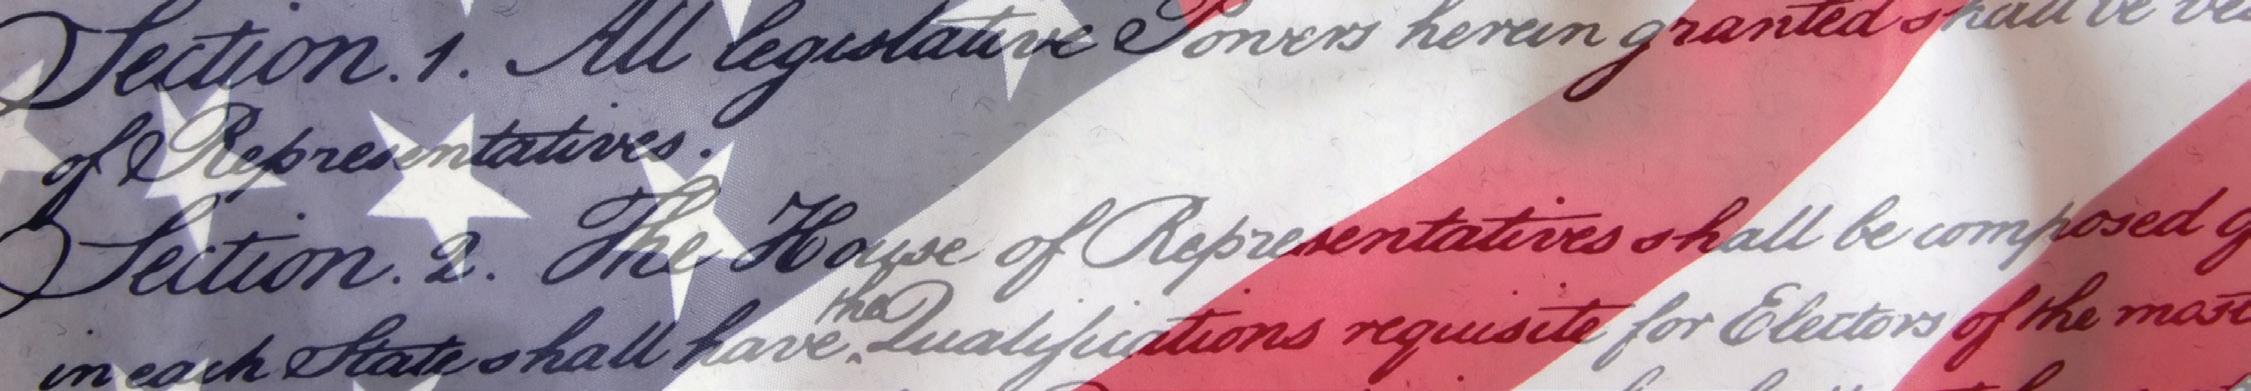 Section. 1. All legislative Powers herein granted shall be
of Representatives.
Section. 2. The House of Representatives shall be composed
the
in each State shall have Qualifications requisite for Electors of the most